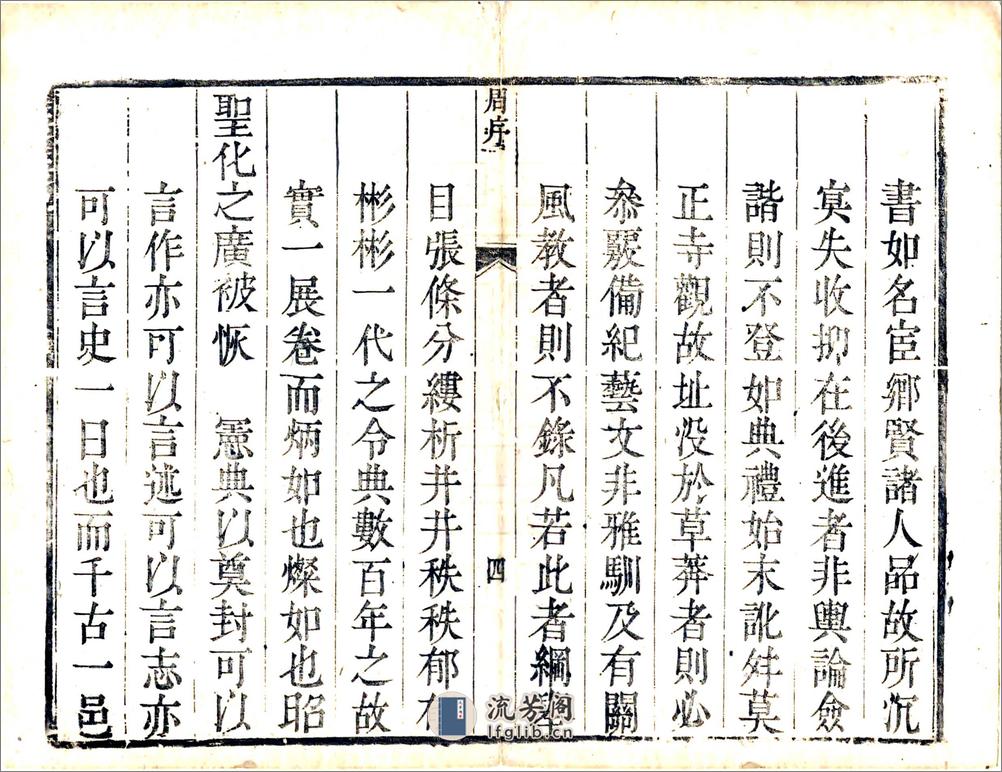 書如名宦鄉賢諸人品故所沉
寘失收抑在後進者非輿論僉
諧則不登如典禮始末訛舛莫
正寺觀故址没於草莽者則必
叅覈備紀藝文非雅馴及有關
風教者則不錄凡若此者綱
周序
四
目張條分縷析井井秩秩郁
彬彬一代之令典數百年之故
實一展卷而炳如也燦如也昭
聖化之廣被恢 憲典以奠封可以
言作亦可以言述可以言志亦
可以言史一日也而千古一邑
流芳閣
lfglib.cn